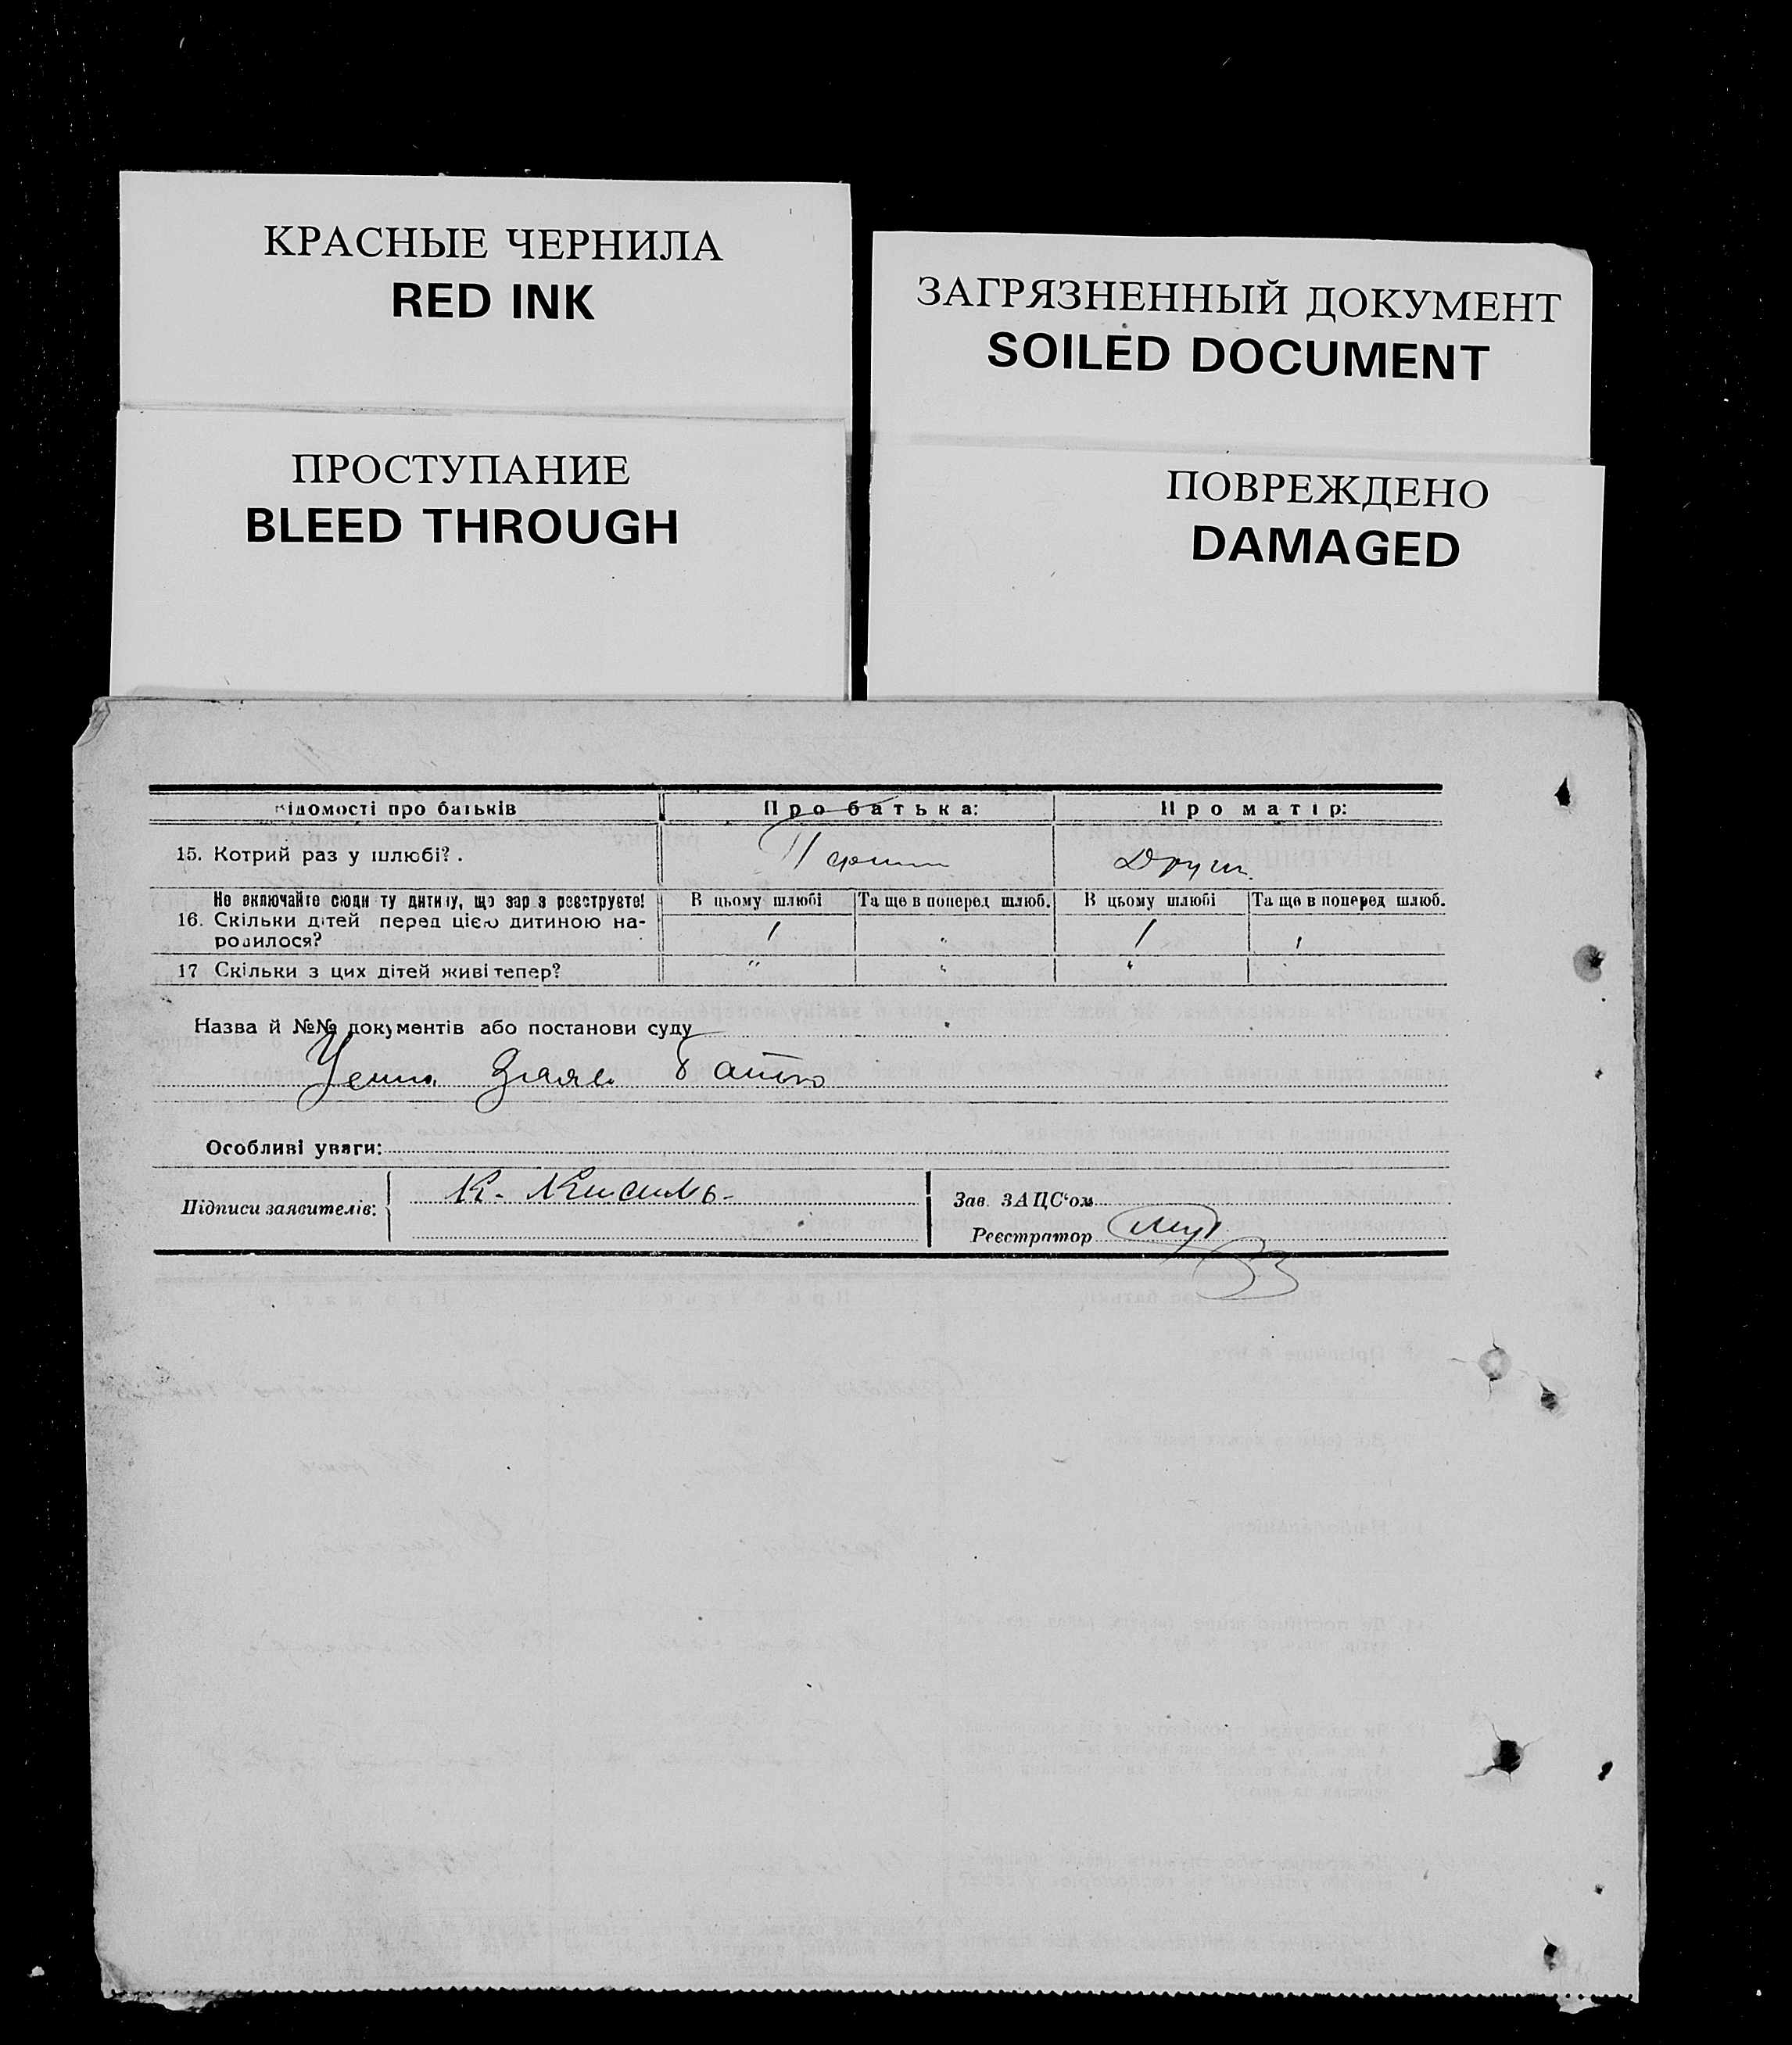 КРАСНЫЕ ЧЕРНИЛА
RED INK
ЗАГРЯЗНЕННЫЙ ДОКУМЕНТ
SOILED DOCUMENT
ПРОСТУПАНИЕ
BLEED THROUGH
ПОВРЕЖДЕНО
DAMAGED
Відомості про батьків Про батька: Про матір:
15. Котрий раз у шлюбі?. Перший Други
Не включайте сюди ту дитину, що зараз реєструєте! В цьому шлюбі Та ще в поперед шлюб. В цьому шлюбі Та ще в поперед шлюб.
16. Скільки дітей перед цією дитиною на-
родилося? 1 " 1 1
17 Скільки з цих дітей живі тепер? " " "
Назва й №№ документів або постанови суду
Усна Заява батько
Особливі уваги:
Підписи заявителів: К.
Зав. ЗАЦС'ом
Реєстратор